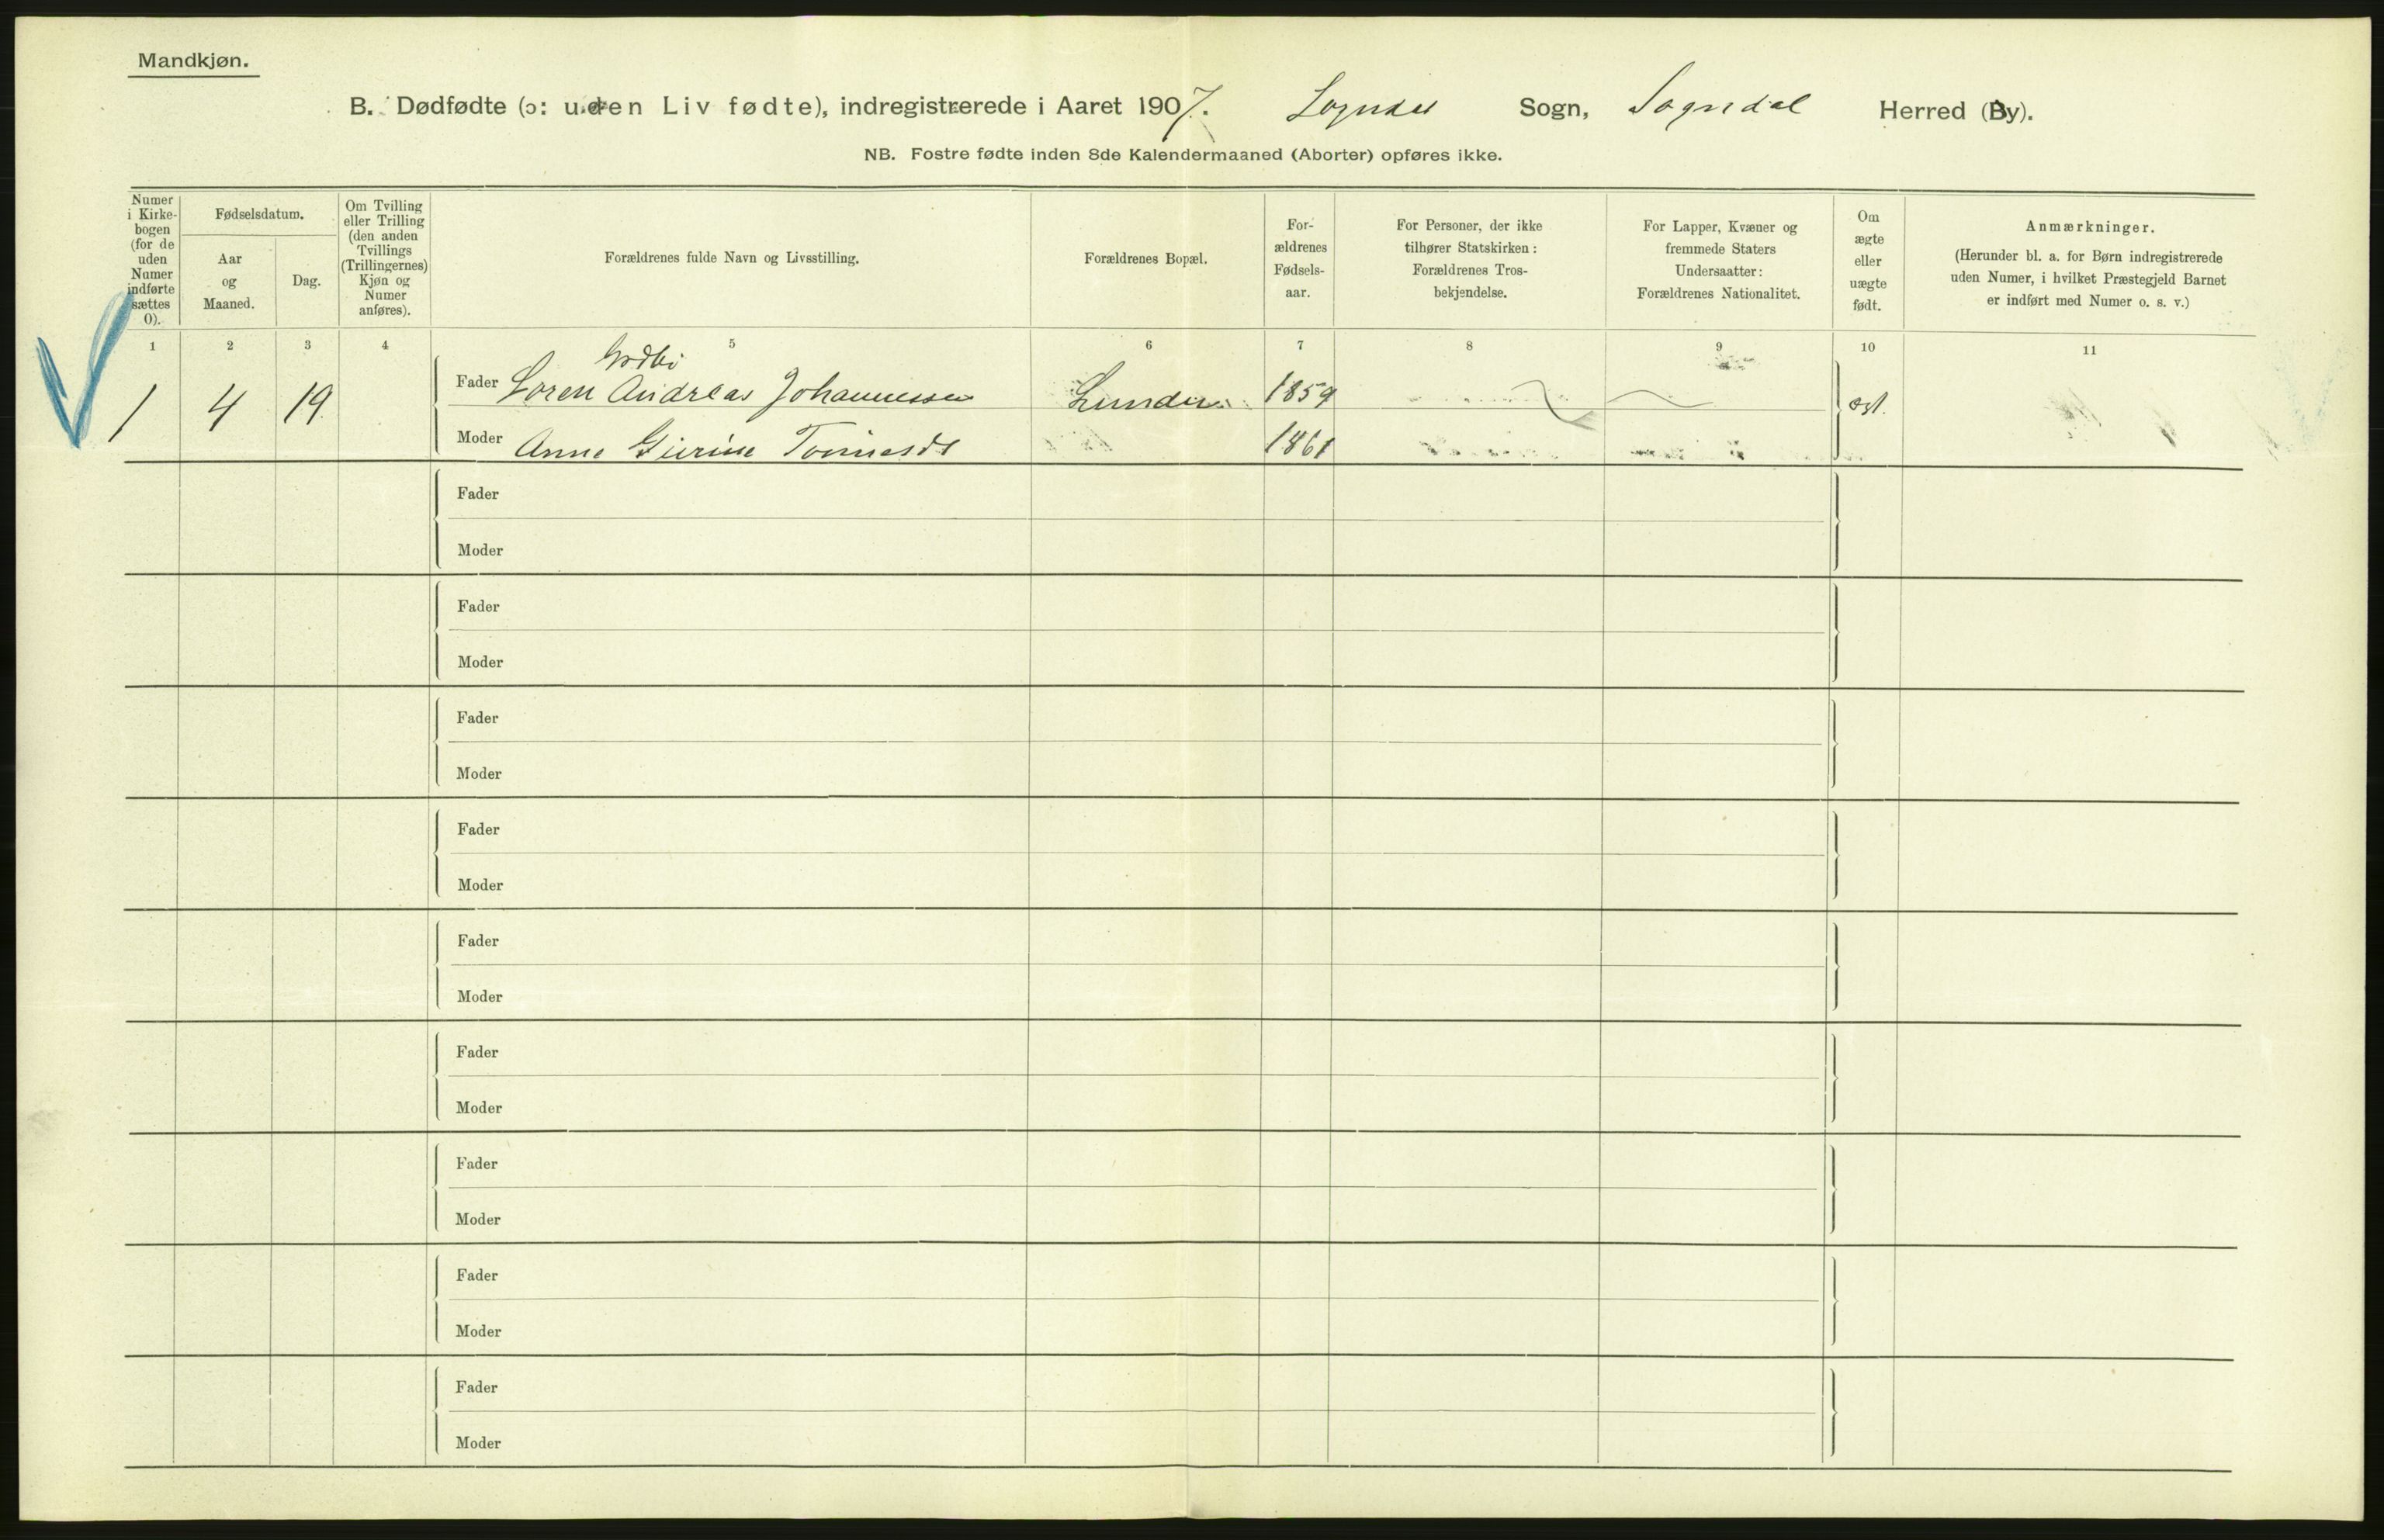 Mandkjøn.
B. Dødfødte (ɔ: uden Liv fødte), indregistrerede i Aaret 1907. Sogndal Sogn, Sogndal Herred (By).
NB. Fostre fødte inden 8de Kalendermaaned (Aborter) opføres ikke.
Numer
i Kirke-
bogen
(for de
uden
Numer
indførte
sættes
0).
Fødselsdatum.
Aar
og
Maaned.
Dag.
Om Tvilling
eller Trilling
(den anden
Tvillings
(Trillingernes)
Kjøn og
Numer
anføres).
Forældrenes fulde Navn og Livsstilling.
Forældrenes Bopæl.
For-
ældrenes
Fødsels-
aar.
For Personer, der ikke
tilhører Statskirken:
Forældrenes Tros-
bekjendelse.
For Lapper, Kvæner og
fremmede Staters
Undersaatter:
Forældrenes Nationalitet.
Om
ægte
eller
uægte
født.
Anmærkninger.
(Herunder bl. a. for Børn indregistrerede
uden Numer, i hvilket Præstegjeld Barnet
er indført med Numer o. s. v.)
1 2 3 4 5 6 7 8 9 10 11
1 4 19. Fader Soren Andreas Johannessen 1859
Moder Anne 1861
Fader
Moder
Fader
Moder
Fader
Moder
Fader
Moder
Fader
Moder
Fader
Moder
Fader
Moder
Fader
Moder
Fader
Moder